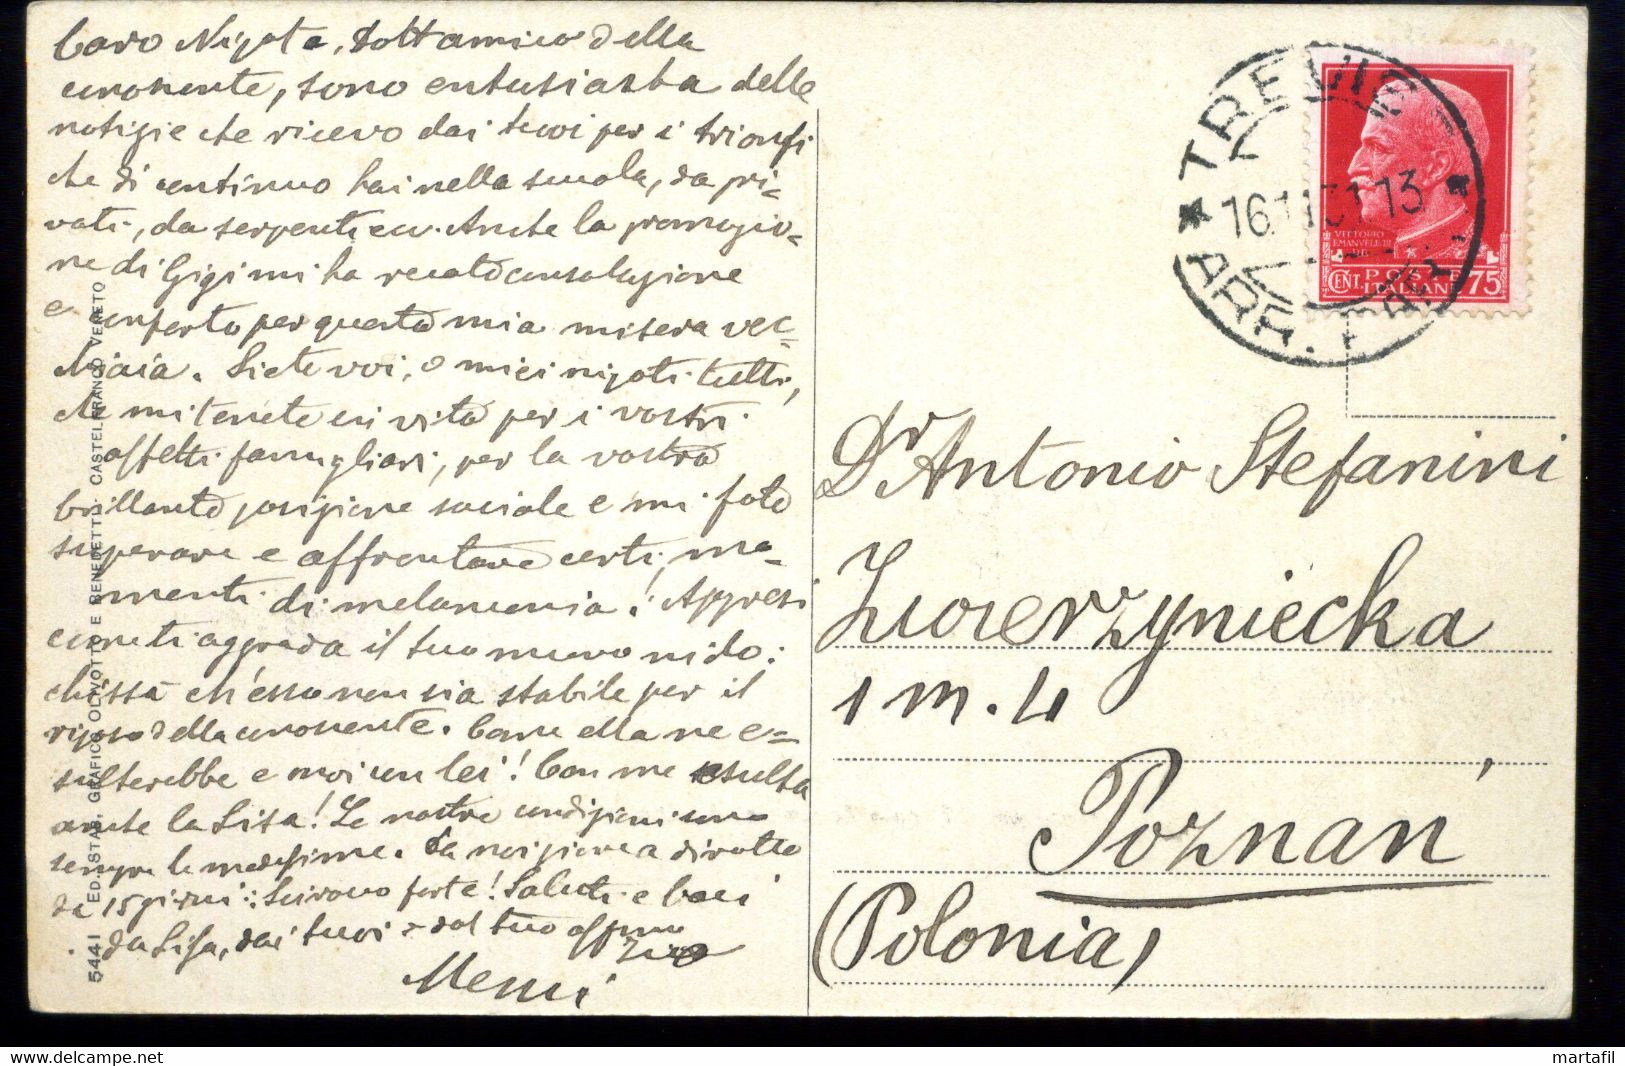 Caro Nipote, Dott amico della
cinonente, sono entusiasta delle
notizie che ricevo dai tuoi per i trionfi
che di continuo hai nella scuola, da pri=
vati, da serpenti ecc. Anche la promozio=
ne di Gigi mi ha recato consolazione
e conforto per questa mia misera vec=
chiaia. Siete voi, o miei nipoti tutti,
che mi tenete in vita per i vostri
affetti famigliari, per la vostra
brillante posizione sociale e mi fate
superare e affrontare certi mo=
menti di melanconia! Appresi
come ti aggrada il tuo nuovo nido:
chissà ch'esso non sia stabile per il
riposo della cinonente. Come ella ne e=
sulterebbe e noi con lei! Con me esulta
anche la Lisa! Le nostre condizioni sono
sempre le medesime. La
di 15 giorni: forte! Saluti e baci
da Lisa, dai tuoi e dal tuo affmo
Zio
Memi
5441 ED. STAB. GRAFICO OLIVOTTO E BENEDETTI - CASTELFRANCO VENETO
TREVISO
16.11.31.13
ARR. PAR
VITTORIO
EMANUELE III
RE
POSTE
CENT. ITALIANE 75
Dr Antonio Stefanini
Zwierzyniecka
1 m. 4
Poznań
(Polonia)
www.delcampe.net
martafil